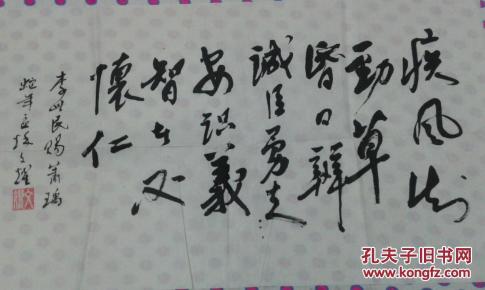 疾風知
勁草
昏日辨
誠臣勇夫
安識義
智者必
懷仁
李世民賜蕭瑀
蛇年
孔夫子旧书网
www.kongfz.com